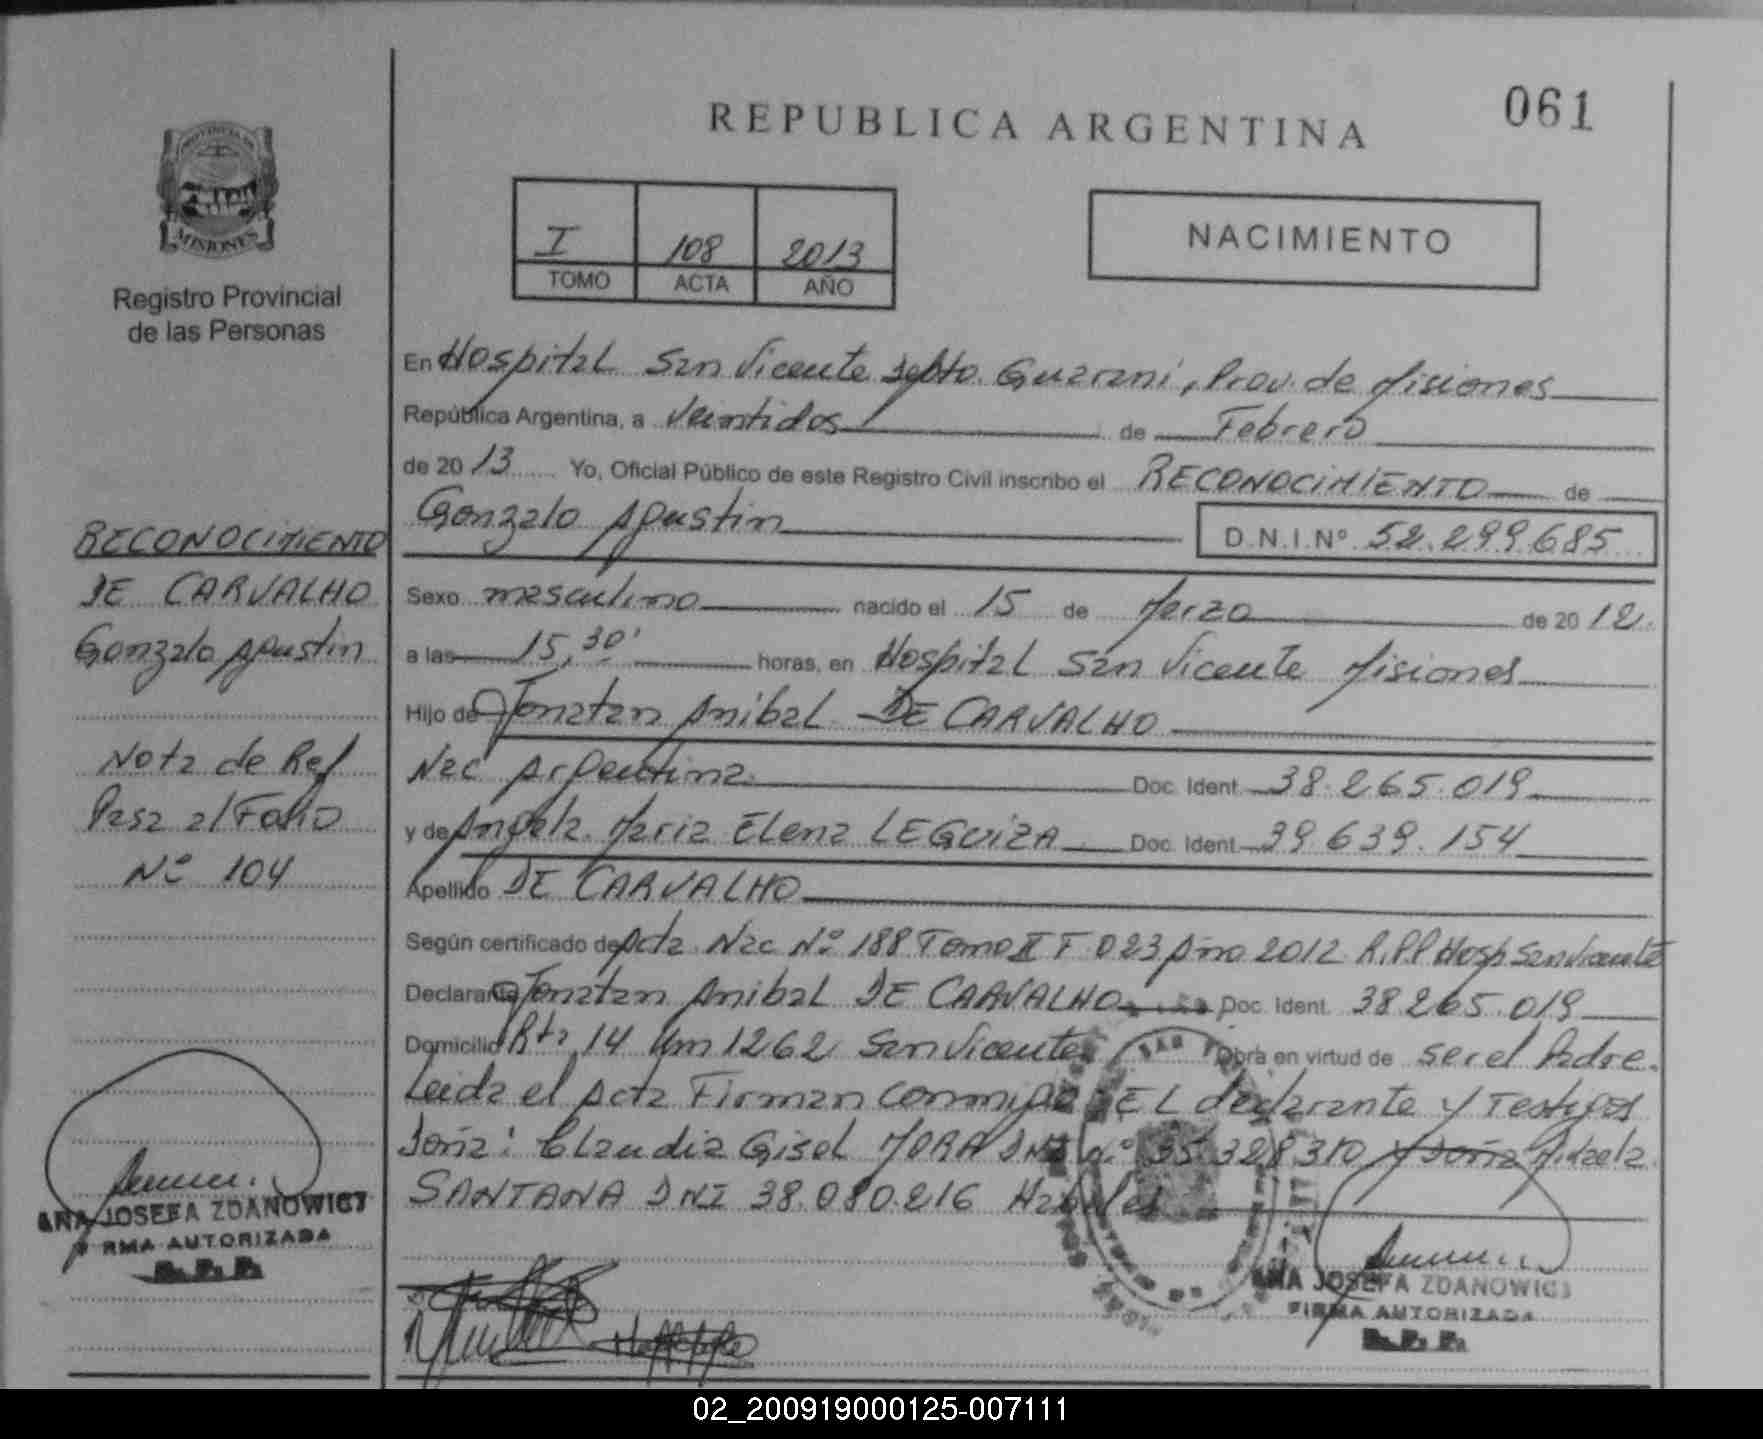 061
REPUBLICA ARGENTINA
PROVINCIA DE
MISIONES
Registro Provincial
de las Personas
I 108 2013
TOMO ACTA AÑO
NACIMIENTO
En Hospital San Vicente Depto. Guarani, Prov. de Misiones
República Argentina, a Veintidos de Febrero
de 20 13 Yo, Oficial Público de este Registro Civil inscribo el RECONOCIMIENTO de
Gonzalo Agustin D.N.I.Nº 52.299.685
Sexo masculino nacido el 15 de Marzo de 20 12.
a las 15,30' horas, en Hospital San Vicente Misiones
Hijo de Jonatan Anibal DE CARVALHO
Nac Argentina. Doc. Ident. 38.265.019
y de Angela Maria Elena LEGUIZA Doc. Ident. 39.639.154
Apellido DE CARVALHO
Según certificado de Acta Nac Nº 188 Tomo II F 023 Año 2012 R.P.P Hosp San Vicente
Declarante Jonatan Anibal DE CARVALHO Doc. Ident. 38265.019
Domicilio Rta 14 Km 1262 San Vicente Obra en virtud de ser el Padre.
Leida el Acta Firman conmigo EL declarante y Testigos
Doña: Claudia Gisel MORA DNI Nº 35.328310 y Doña Micaela
SANTANA DNI 38.080.216 Habiles
RECONOCIMIENTO
DE CARVALHO
Gonzalo Agustin
Nota de Ref
Pasa al Folio
Nº 104
ANA JOSEFA ZDANOWICZ
FIRMA AUTORIZADA
R. P. P.
ANA JOSEFA ZDANOWICZ
FIRMA AUTORIZADA
R. P. P.
02_200919000125-007111